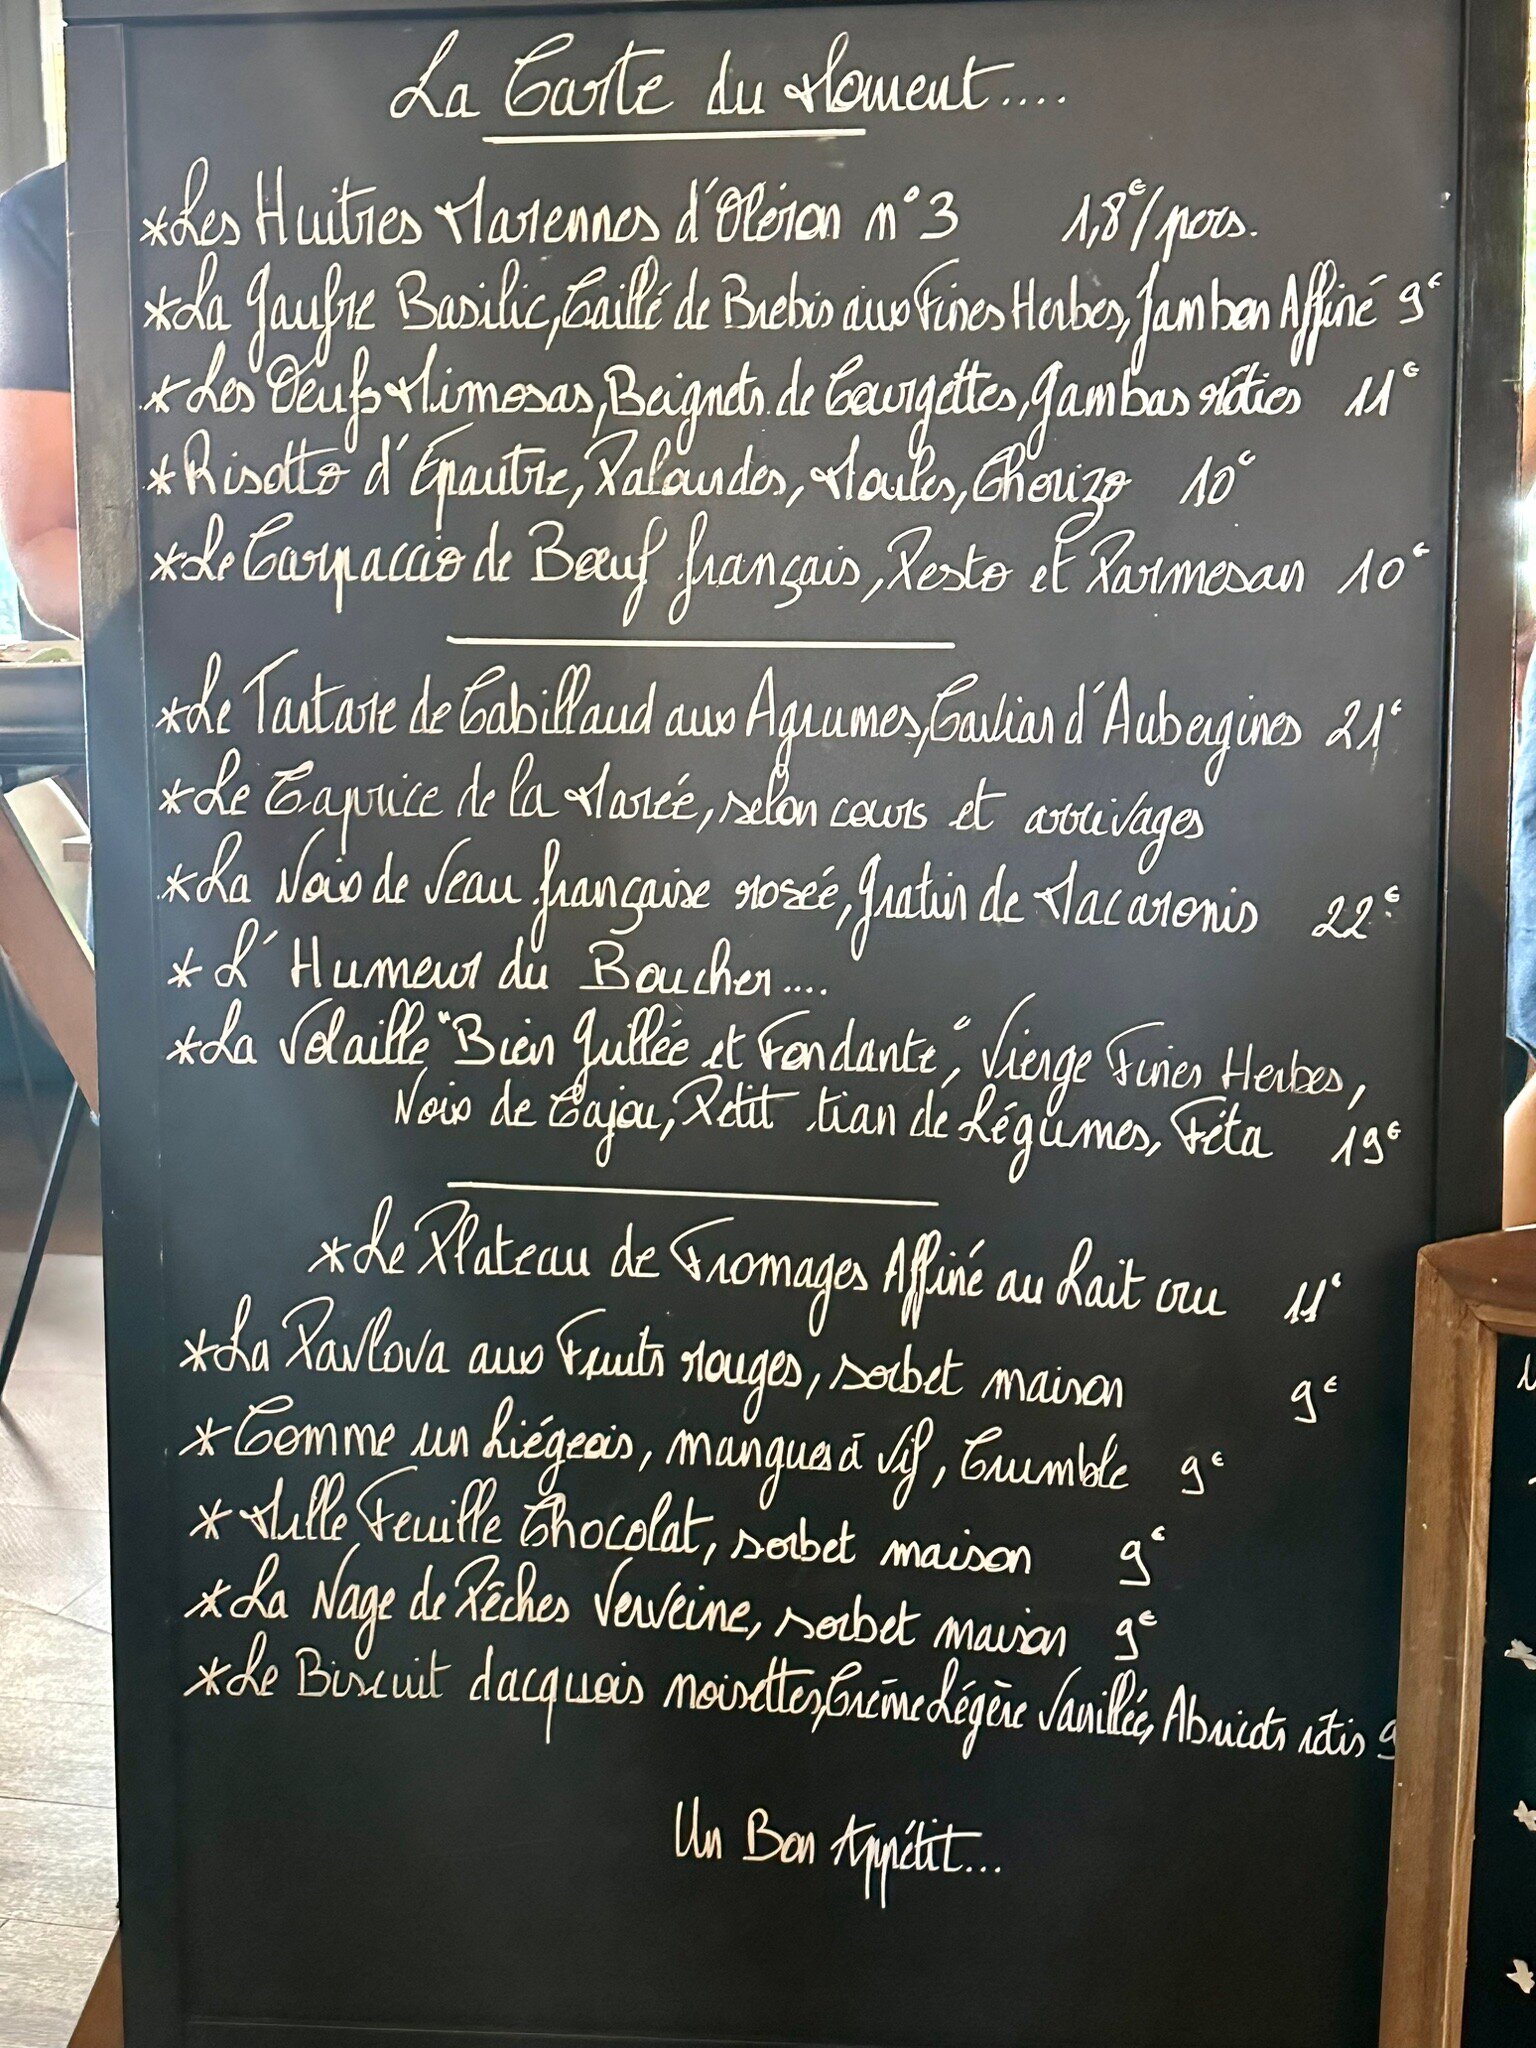 La Carte du Moment....
*Les Huitres Marennes d'Oléron n°3 1,8€/pers.
*La Gaufre Basilic, Caillé de Brebis aux Fines Herbes, Jambon Affiné 9€
*Les Oeufs Mimosas, Beignets de Courgettes, Gambas rôties 11€
*Risotto d'Épautre, Palourdes, Moules, Chorizo 10€
*Le Carpaccio de Bœuf français, Pesto et Parmesan 10€
*Le Tartare de Cabillaud aux Agrumes, Caviar d'Aubergines 21€
*Le Caprice de la Marée, selon cours et arrivages
*La Noix de Veau française rosée, Gratin de Macaronis 22€
*L'Humeur du Boucher....
*La Volaille "Bien Gullée et Fondante", Vierge Fines Herbes,
Noix de Cajou, Petit tian de Légumes, Féta 19€
*Le Plateau de Fromages Affiné au Lait cru 11€
*La Pavlova aux Fruits rouges, sorbet maison 9€
*Comme un Liégeois, mangues à vif, Crumble 9€
*Mille Feuille Chocolat, sorbet maison 9€
*La Nage de Pêches Verveine, sorbet maison 9€
*Le Biscuit dacquois noisettes, Crème Légère Vanillée, Abricots rôtis 9
Un Bon Appétit...